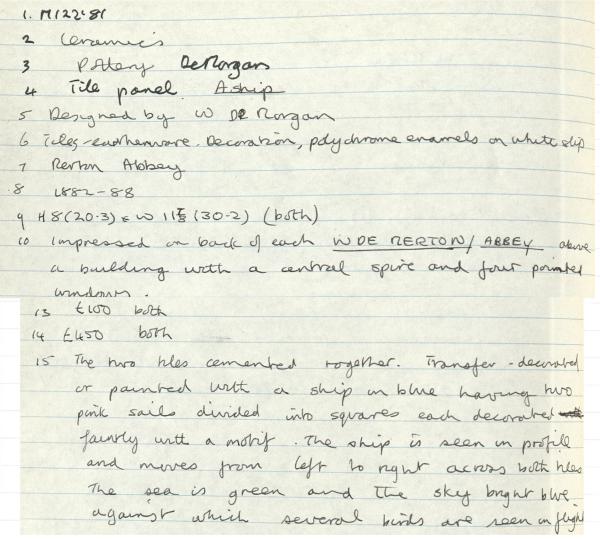 1. M122-81
2 Ceramics
3 Pottery DeMorgans
4 Tile panel. A ship
5 Designed by W DE Morgan
6 Tiles - earthenware. Decoration, polychrome enamels on white slip
7 Merton Abbey
8 1882-88
9 H 8 (20.3) x W 11 7/8 (30.2) (both)
10 Impressed on back of each W DE MERTON / ABBEY above
a building with a central spire and four pointed
windows.
13 £100 both
14 £450 both
15 The two tiles cemented together. Transfer-decorated
or painted with a ship in blue having two
pink sails divided into squares each decorated
faintly with a motif. The ship is seen in profile
and moves from left to right across both tiles
The sea is green and the sky bright blue
against which several birds are seen in flight